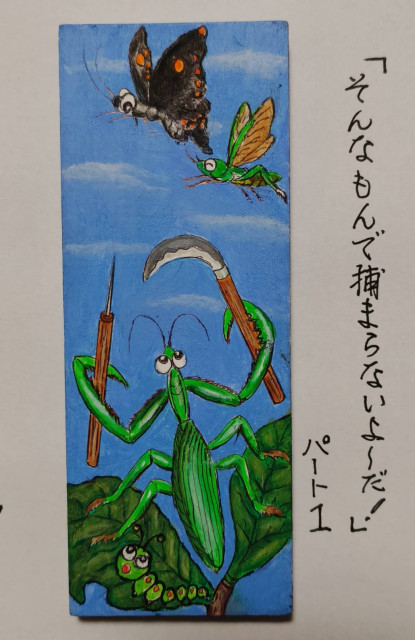 「そんなもんで捕まらないよ〜だ！」
パート1